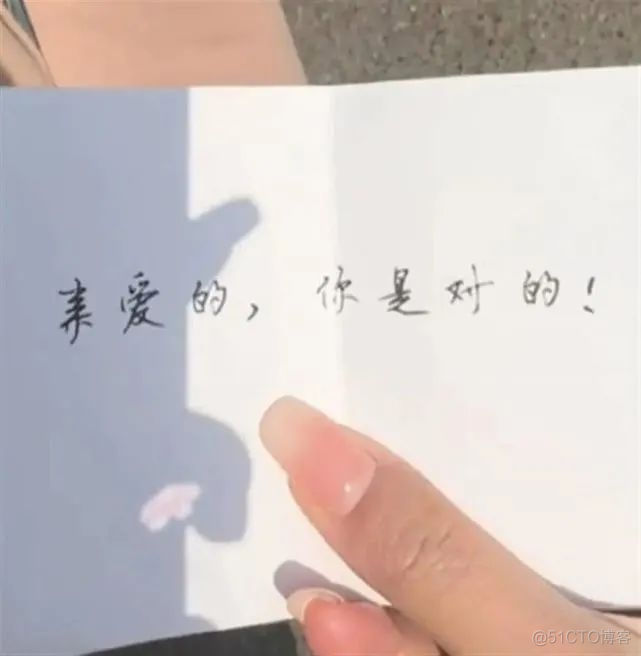 亲爱的，你是对的！
@51CTO博客